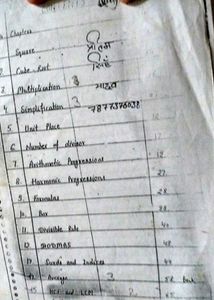 Chapters
Square
प्रीतम
2 Cube Root
सिंह
3 Multiplication 3
यादव
4 Simplification 3
7877375038
5 Unit Place
6 Number of divisor 12
7 Arithmetic Progressions 12
8 Harmonic Progressions 27
9 Formulas 28
10 Box 38
11 Divisible Rule 40
12 BODMAS 48
13 Surds and Indices 49
14 Average 2 52 Back
15 HCF and LCM 2